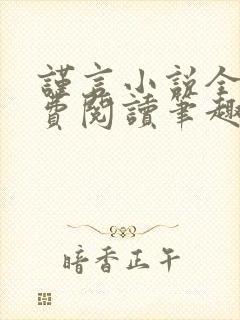 謹言小説全
費閱讀筆趣
暗香正午